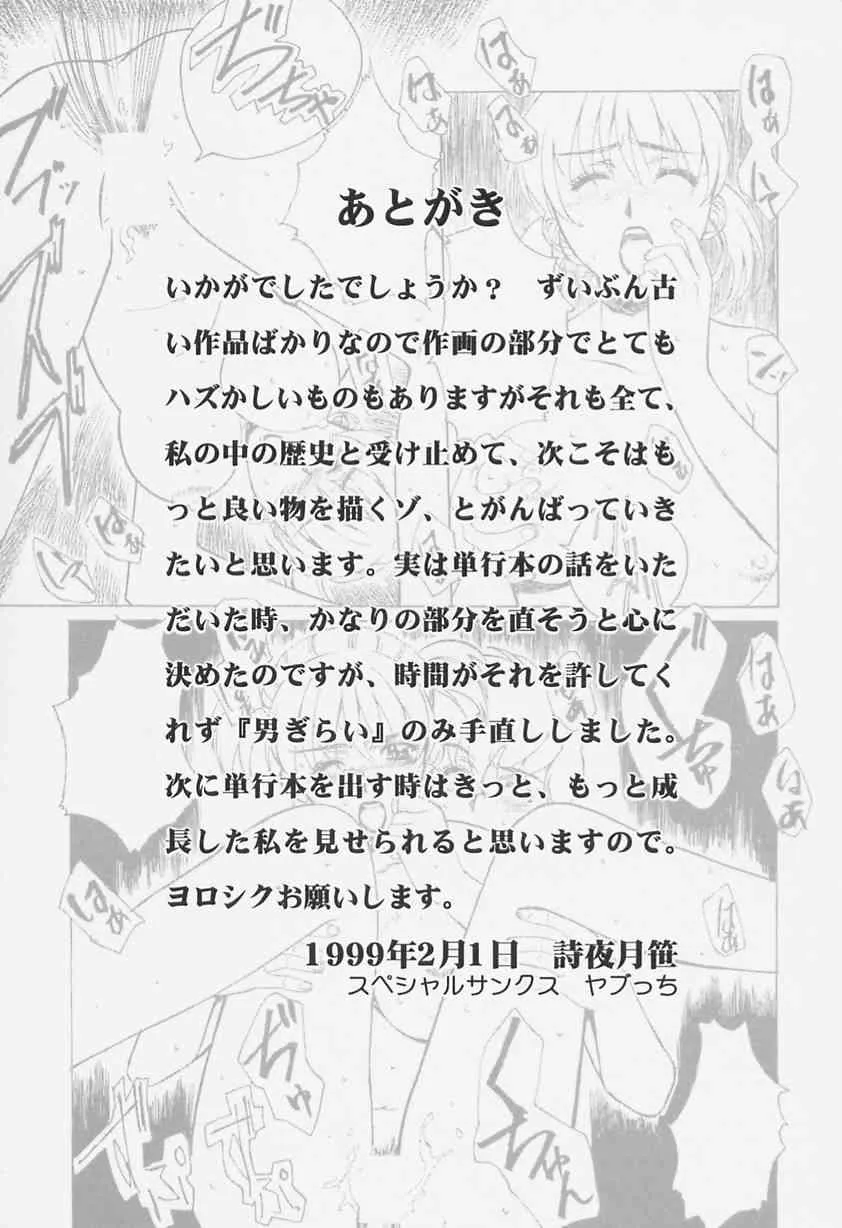 あとがき
いかがでしたでしょうか？　ずいぶん古
い作品ばかりなので作画の部分でとても
ハズかしいものもありますがそれも全て、
私の中の歴史と受け止めて、次こそはも
っと良い物を描くゾ、とがんばっていき
たいと思います。実は単行本の話をいた
だいた時、かなりの部分を直そうと心に
決めたのですが、時間がそれを許してく
れず『男ぎらい』のみ手直ししました。
次に単行本を出す時はきっと、もっと成
長した私を見せられると思いますので。
ヨロシクお願いします。
1999年2月1日　詩夜月笹
スペシャルサンクス　ヤブっち
はぁ
はぁ
はぁ
ぢゅ
ちゅ
はぁ
はぁ
はぁ
はぁ
ぢゅ
ちゅん